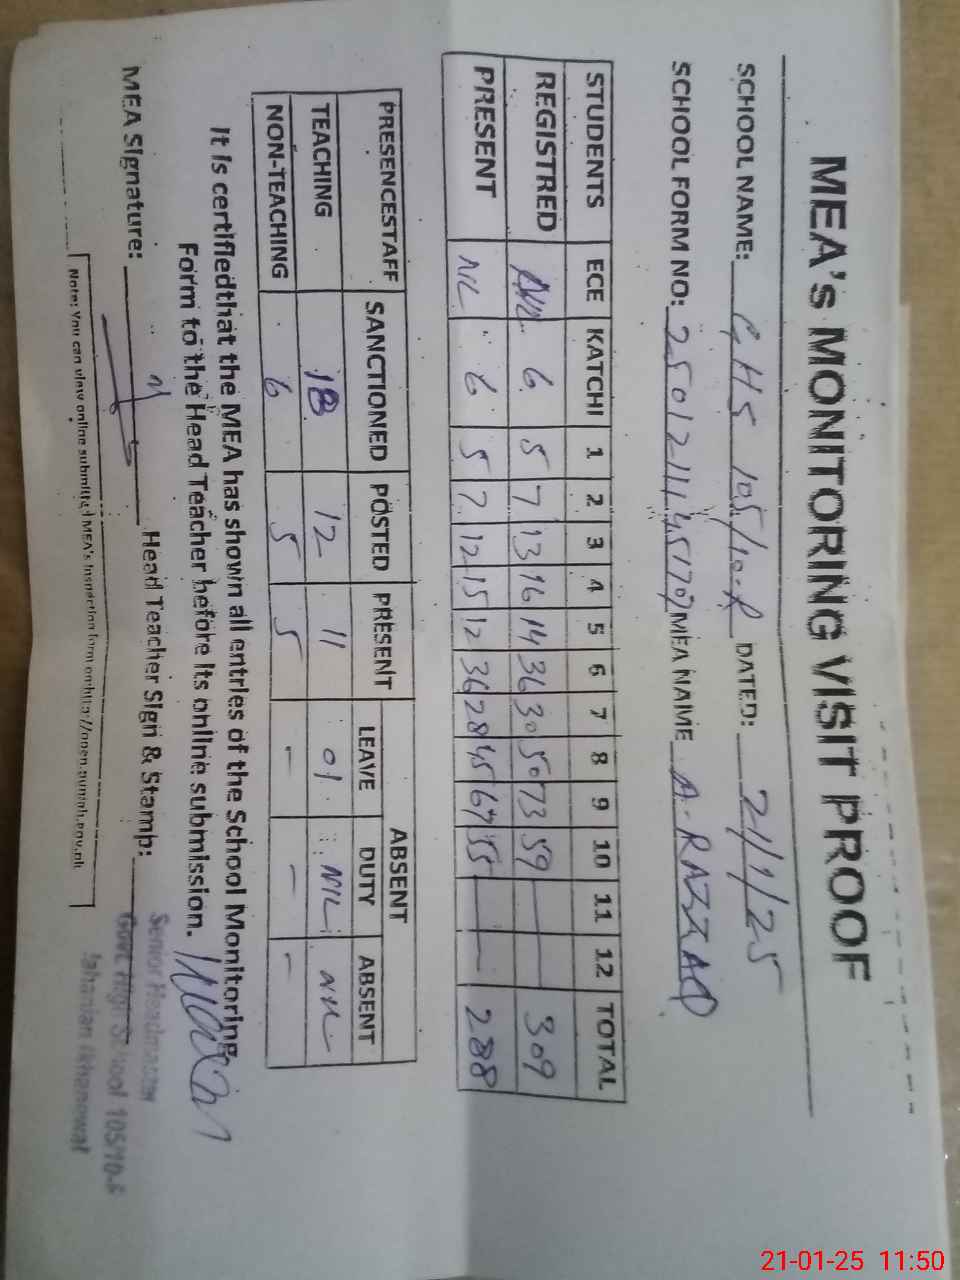 MEA's MONITORING VISIT PROOF
SCHOOL NAME: GHS 105/10-R DATED: 21/1/25
SCHOOL FORM NO: MEA NAME A. RAZZAQ
STUDENTS ECE KATCHI 1 2 3 4 5 6 7 8 9 10 11 12 TOTAL
REGISTRED 6 5 7 13 16 14 36 30 50 73 59 — — 309
PRESENT NIL 6 5 7 12 15 12 36 28 45 67 55 — — 288
PRESENCESTAFF SANCTIONED POSTED PRESENT ABSENT
LEAVE DUTY ABSENT
TEACHING 18 12 11 01 NIL NIL
NON-TEACHING 6 5 5 — — —
It is certifiedthat the MEA has shown all entries of the School Monitoring
Form to the Head Teacher before its online submission.
MEA Signature: Head Teacher Sign & Stamp:
Senior Headmaster
Govt. High School 105/10-R
Jahanian (Khanewal
Note: You can view online submitted MEA's Inspection form on:http://open.punjab.gov.pk
21-01-25 11:50